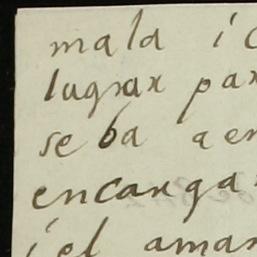 mala i c
lugrar par
se ba a en
encargar
i el aman